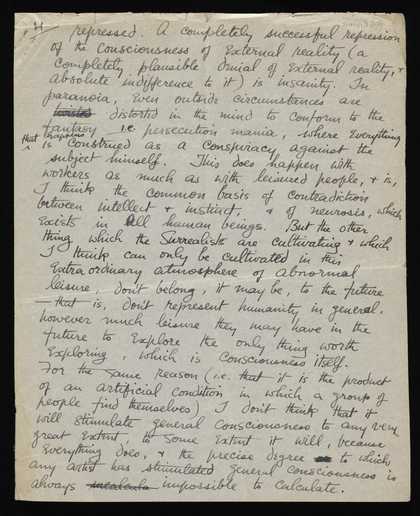 4
repressed. A completely successful repression
of the consciousness of external reality (a
completely plausible denial of external reality, &
absolute indifference to it) is insanity. In
paranoia, even outside circumstances are
twisted distorted in the mind to conform to the
fantasy i.e. persecution mania, where everything
that happens is construed as a conspiracy against the
subject himself. This does happen with
workers as much as with leisured people, & is,
I think the common basis of contradiction
between intellect & instinct. & of neurosis, which
exists in all human beings. But the other
thing which the Surrealists are cultivating & which
I think can only be cultivated in this
extraordinary atmosphere of abnormal
leisure, don't belong, it may be, to the future
— that is, don't represent humanity in general.
however much leisure they may have in the
future to explore the only thing worth
exploring, which is consciousness itself.
For the same reason (i.e. that it is the product
of an artificial condition in which a group of
people find themselves) I don't think that it
will stimulate general consciousness to any very
great extent, to some extent it will, because
everything does, & the precise degree to which
any artist has stimulated general consciousness is
always incalcula impossible to calculate.